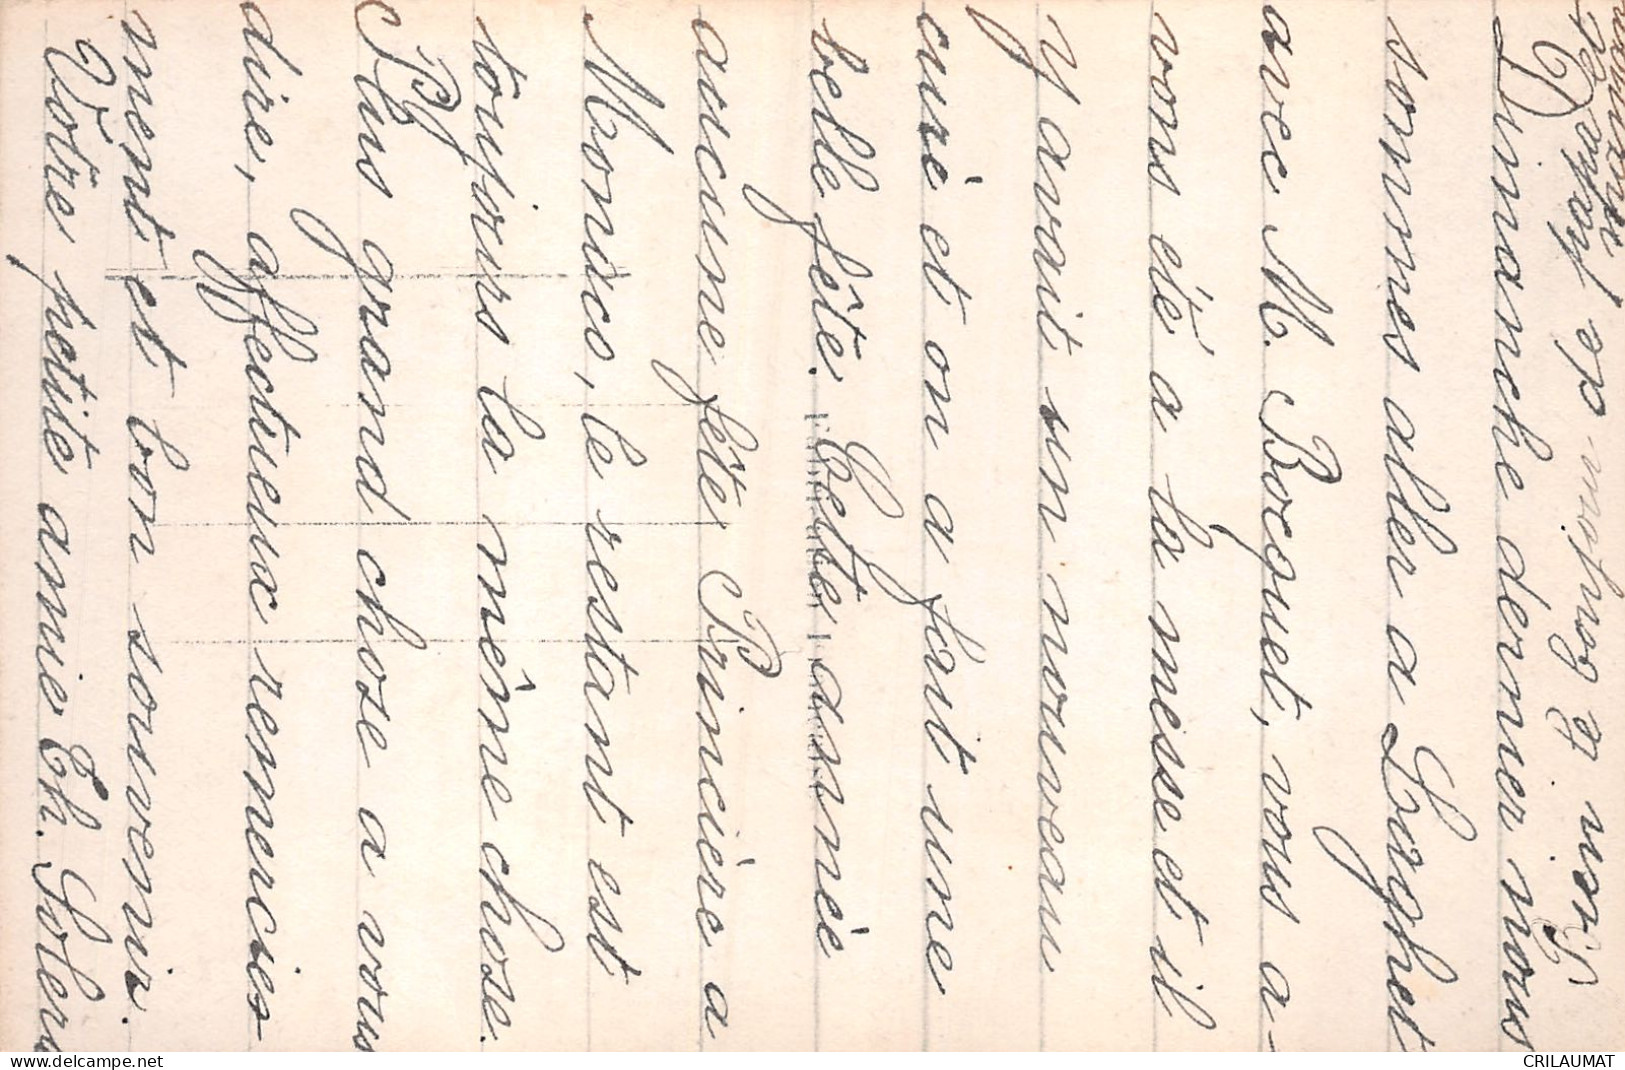 Dimanche dernier nous
sommes aller a Laghet
avec M. Bocquet, vous a-
vons eté a la messe et il
y avait un nouveau
curé et on a fait une
belle fête. Cette année
aucune fête Princière a
Monaco, le restant est
toujours la même chose.
Plus grand chose a vous
dire, affectueux remercies
ment et bon souvenir.
Vôtre petite amie Eh. Soler
Bien le bonjour de papa
CRILAUMAT